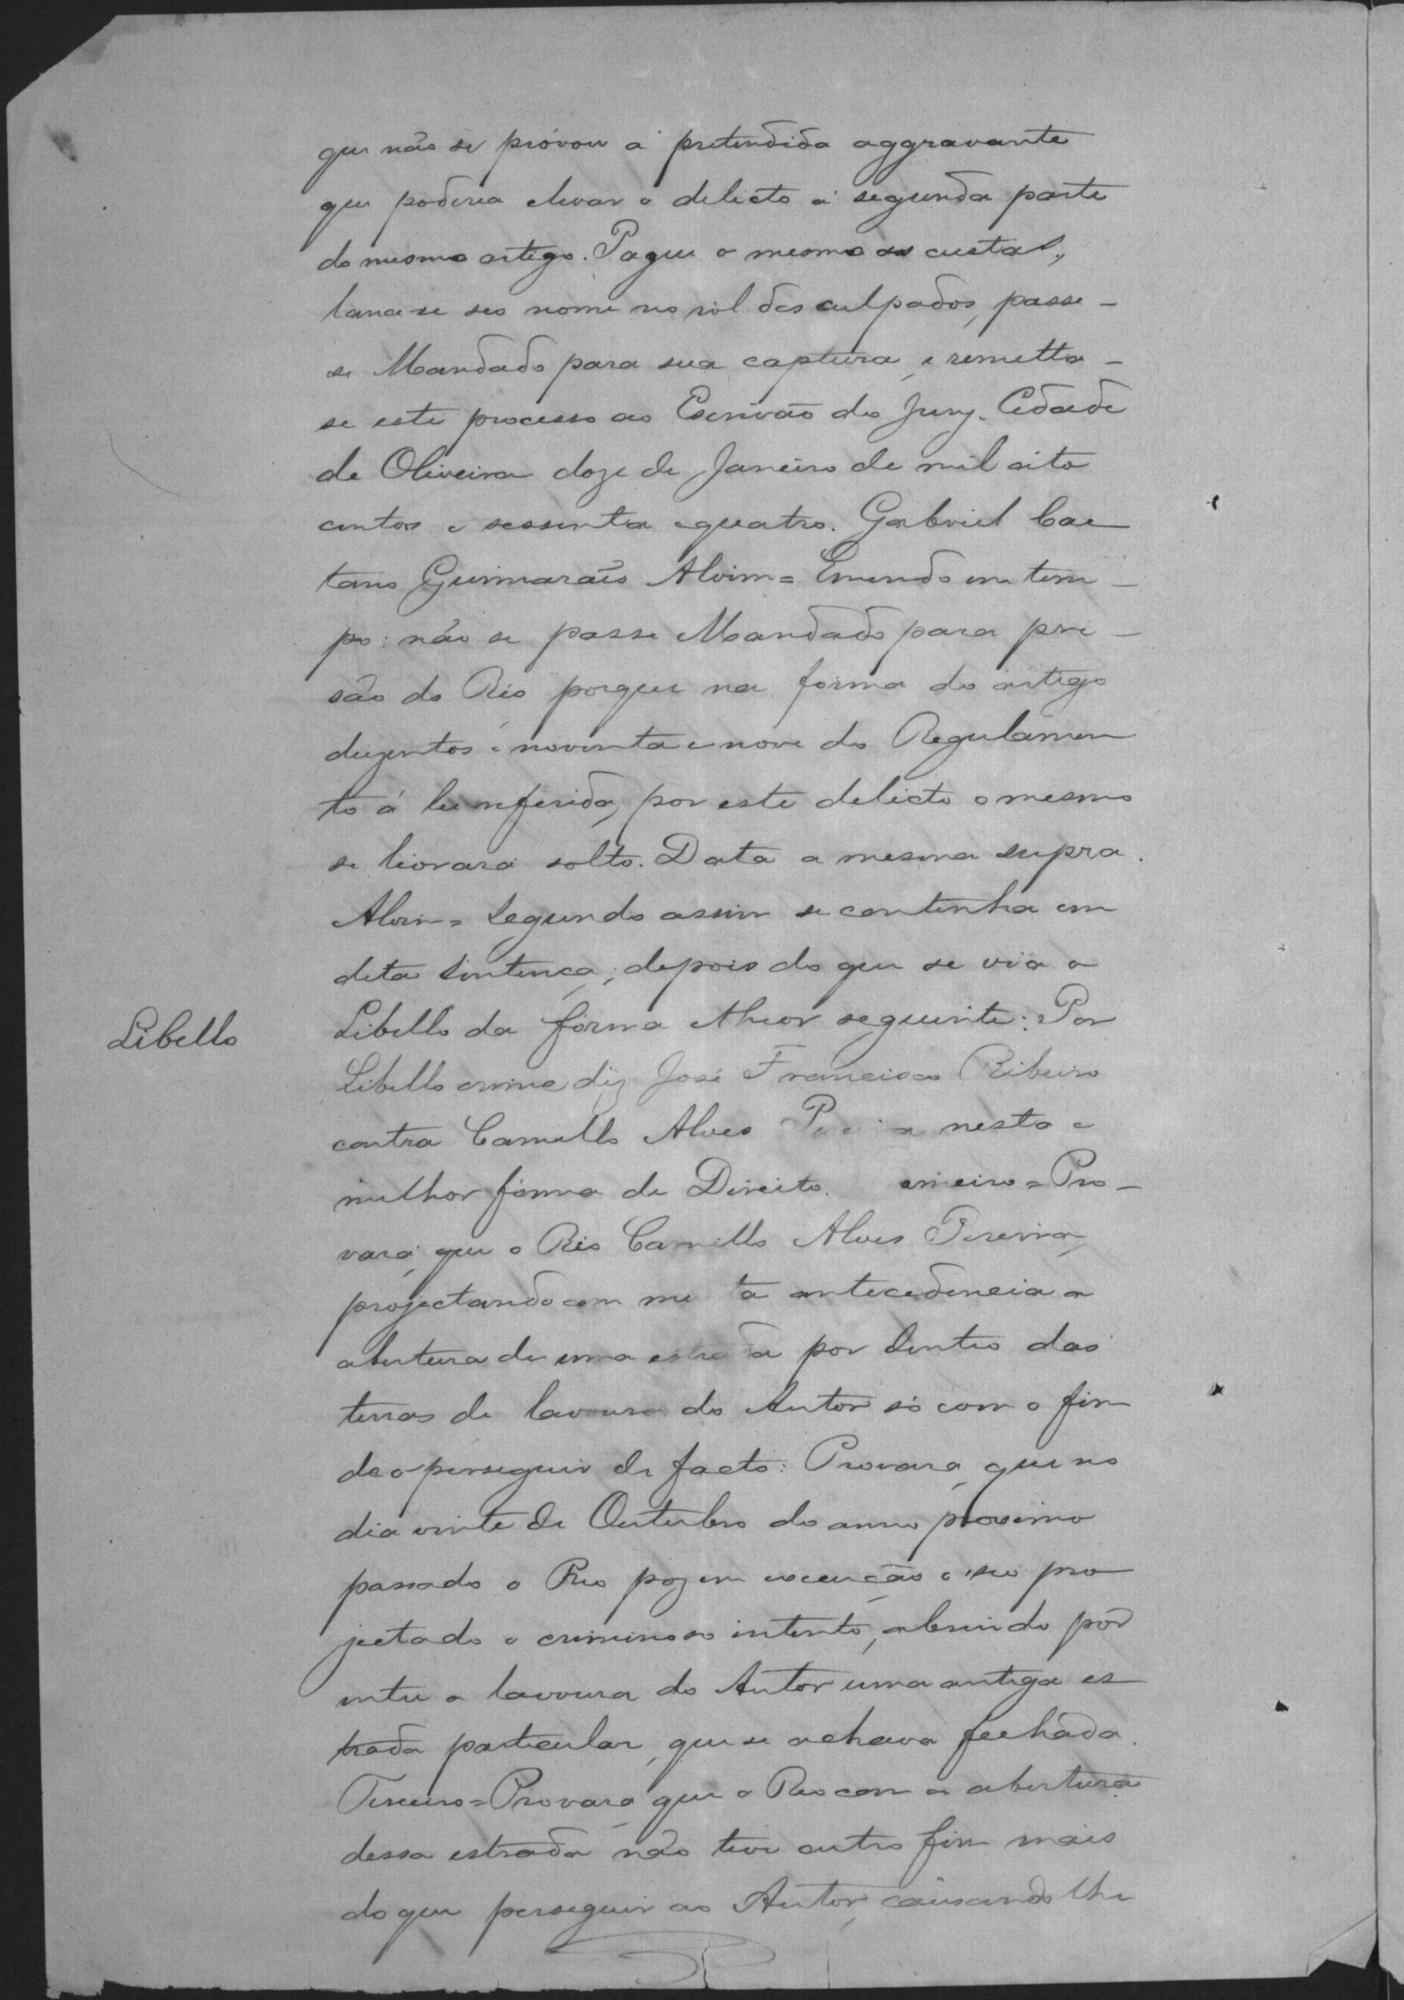 que não se provou a pretendida aggravante
que poderia elevar o delicto á segunda parte
do mesmo artigo. Pague o mesmo as custas,
lance-se seo nome no rol dos culpados, passe-
se Mandado para sua captura, e remetta-
se este processo ao Escrivão do Jury. Cidade
de Oliveira doze de Janeiro de mil oito
centos e sessenta e quatro. Gabriel Cae
tano Guimarães Alvim = Emendo em tem-
po: não se passe Mandado para pri-
são do Réo porque na forma do artigo
duzentos e noventa e nove do Regulamen
to á lei referida, por este delicto o mesmo
se livrará solto. Data a mesma supra.
Alvim = Segundo assim se continha em
dita Sentença; depois do que se via o
Libello
Libello da fórma e theor seguinte: Por
Libello crime diz José Francisco Ribeiro
contra Camillo Alves nesta e
milhor fórma de Direito. = Pro-
vará, que o Réo Camillo Alves Pereira,
projectando com antecedencia a
abertura de uma por dentro das
terras de lavoura do Autor só com o fim
de o perseguir de facto: Provará, que no
dia vinte de Outubro do anno proximo
passado o Reo poz em execução o seo pro
jectado e criminoso intento, abrindo por
entre a lavoura do Autor uma antiga es
trada particular, que se achava fechada.
Terceiro = Provará que o Reo com a abertura
dessa estrada não teve outro fim mais
do que perseguir ao Autor, causando lhe